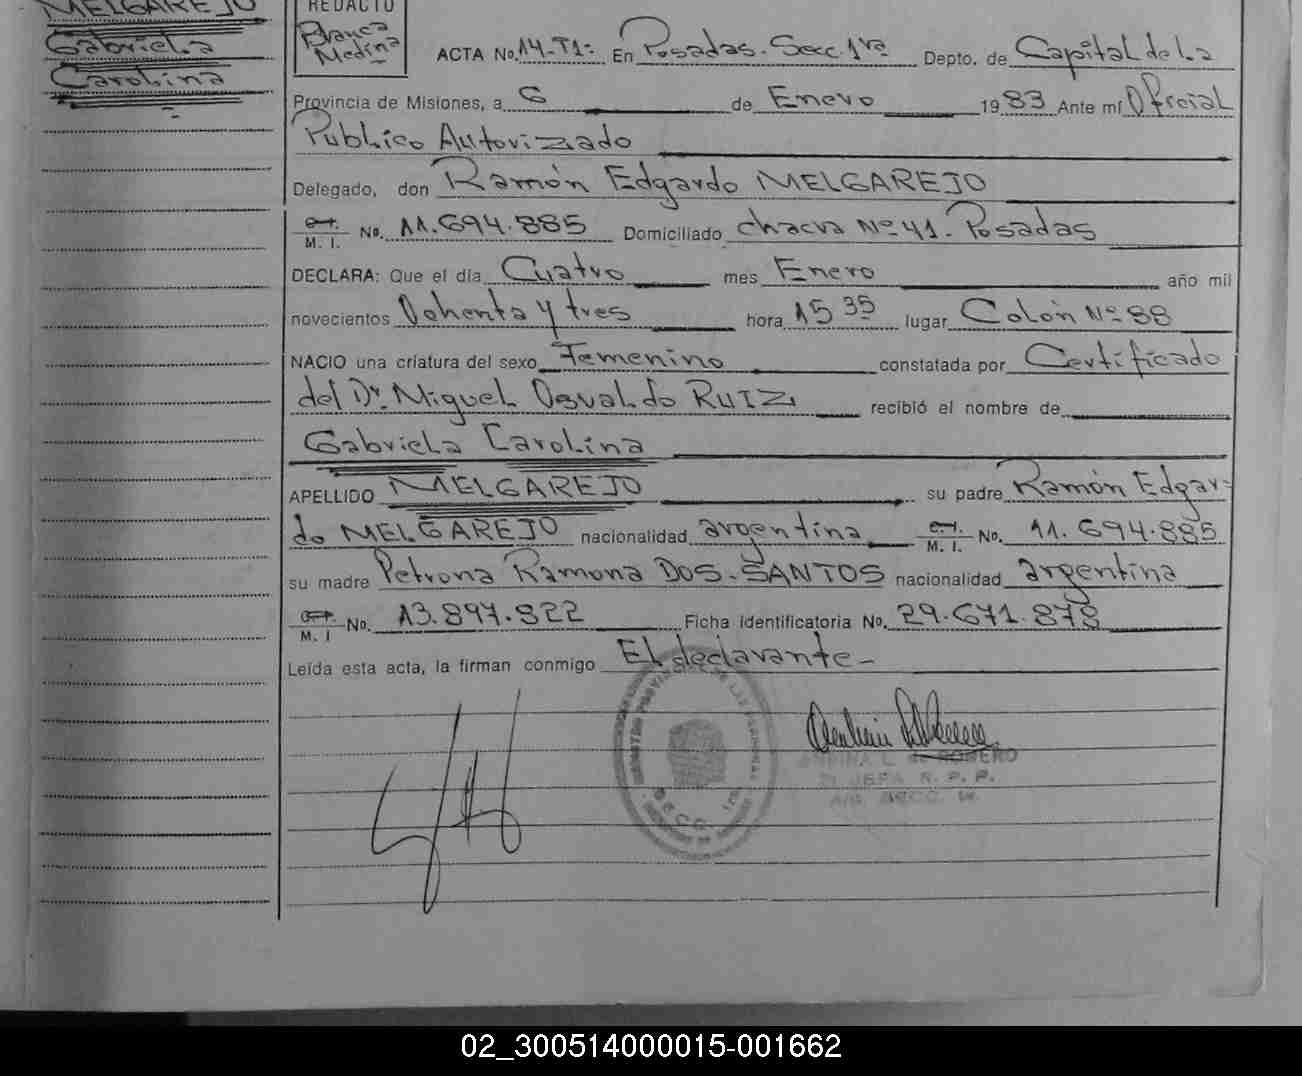 MELGAREJO
Gabriela
Carolina
REDACTO
Blanca
Medina
ACTA No. 14-T1: En Posadas. Secc. 1ra Depto. de Capital de La
Provincia de Misiones, a 6 de Enero 1983 Ante mí Oficial
Publico Autorizado
Delegado, don Ramón Edgardo MELGAREJO
M. I. No. 11.694.885 Domiciliado chacra Nº 41. Posadas
DECLARA: Que el día Cuatro mes Enero año mil
novecientos Ochenta y tres hora 15 35 lugar Colón Nº 88
NACIO una criatura del sexo Femenino constatada por Certificado
del Dr. Miguel Osvaldo RUIZ recibió el nombre de
Gabriela Carolina
APELLIDO MELGAREJO su padre Ramón Edgar-
do MELGAREJO nacionalidad argentina M. I. No. 11.694.885
su madre Petrona Ramona DOS-SANTOS nacionalidad argentina
M. I No. 13.897.822 Ficha Identificatoria No. 29.671.878
Leída esta acta, la firman conmigo El declarante-
SECC. 1ra
ROMERO
JEFA R. P. P.
02_300514000015-001662